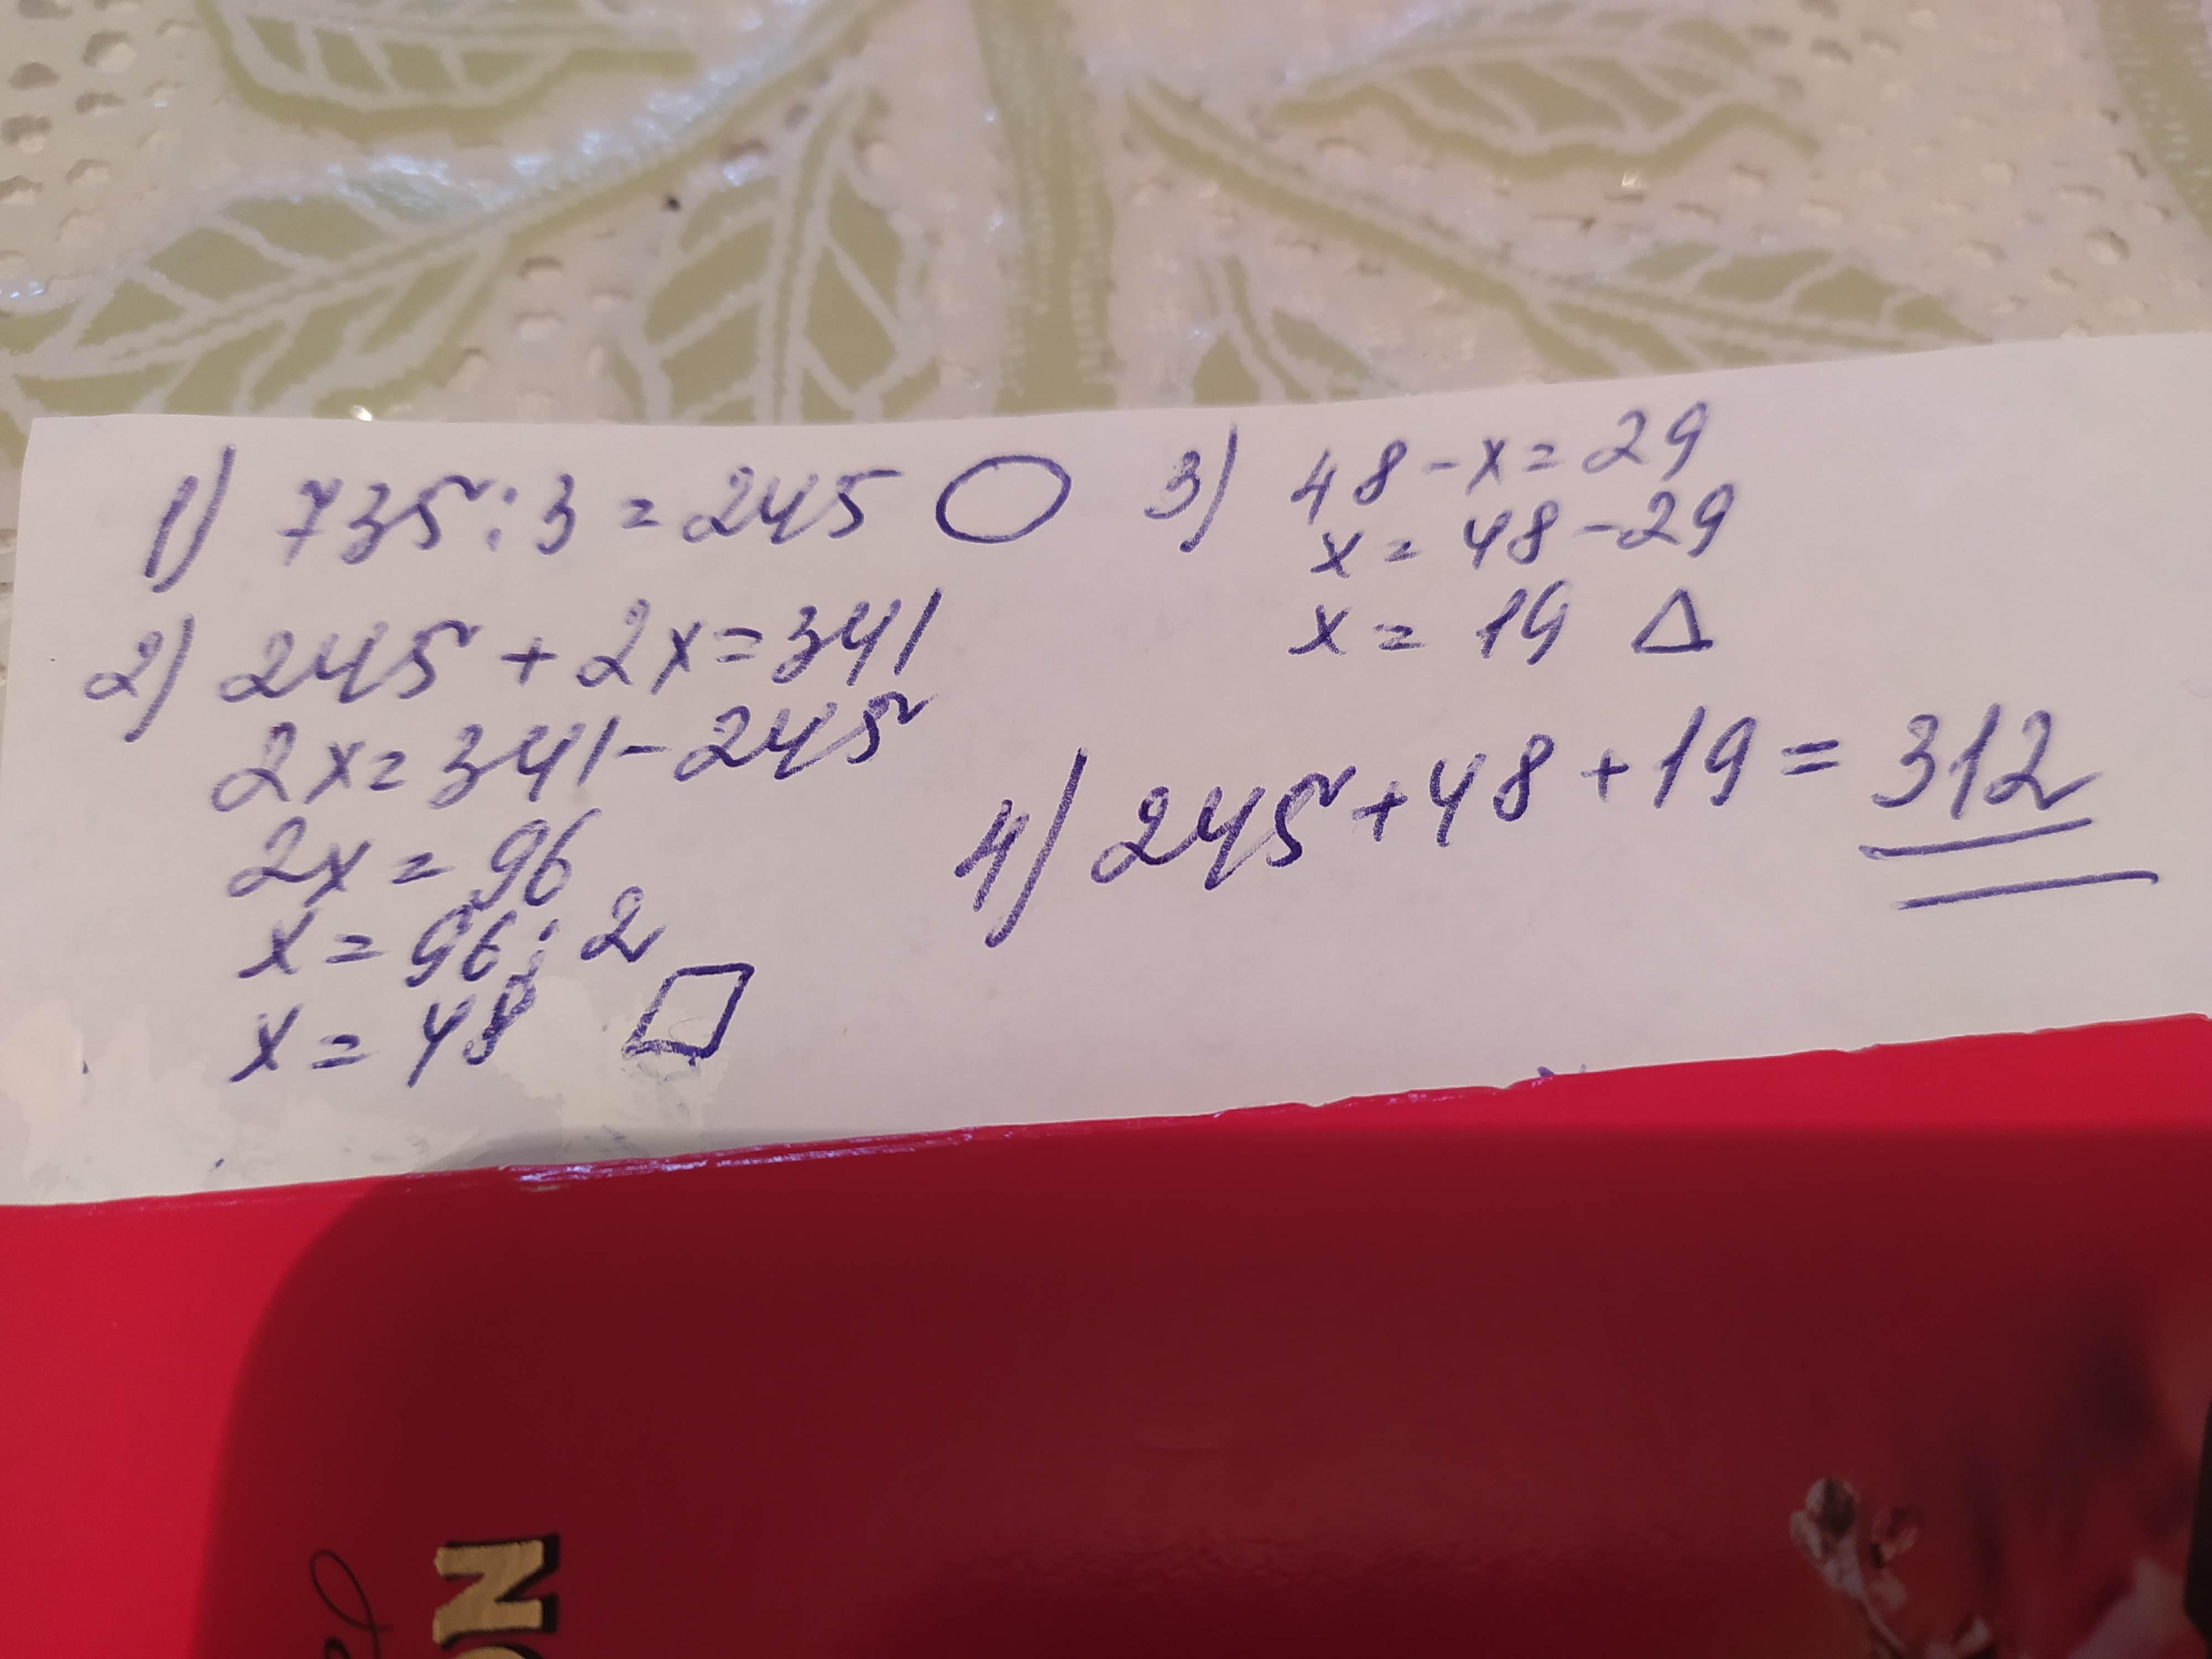 1) 735:3=245
2) 245+2x=341
2x=341-245
2x=96
x=96:2
x=48
3) 48-x=29
x=48-29
x=19
4) 245+48+19=312